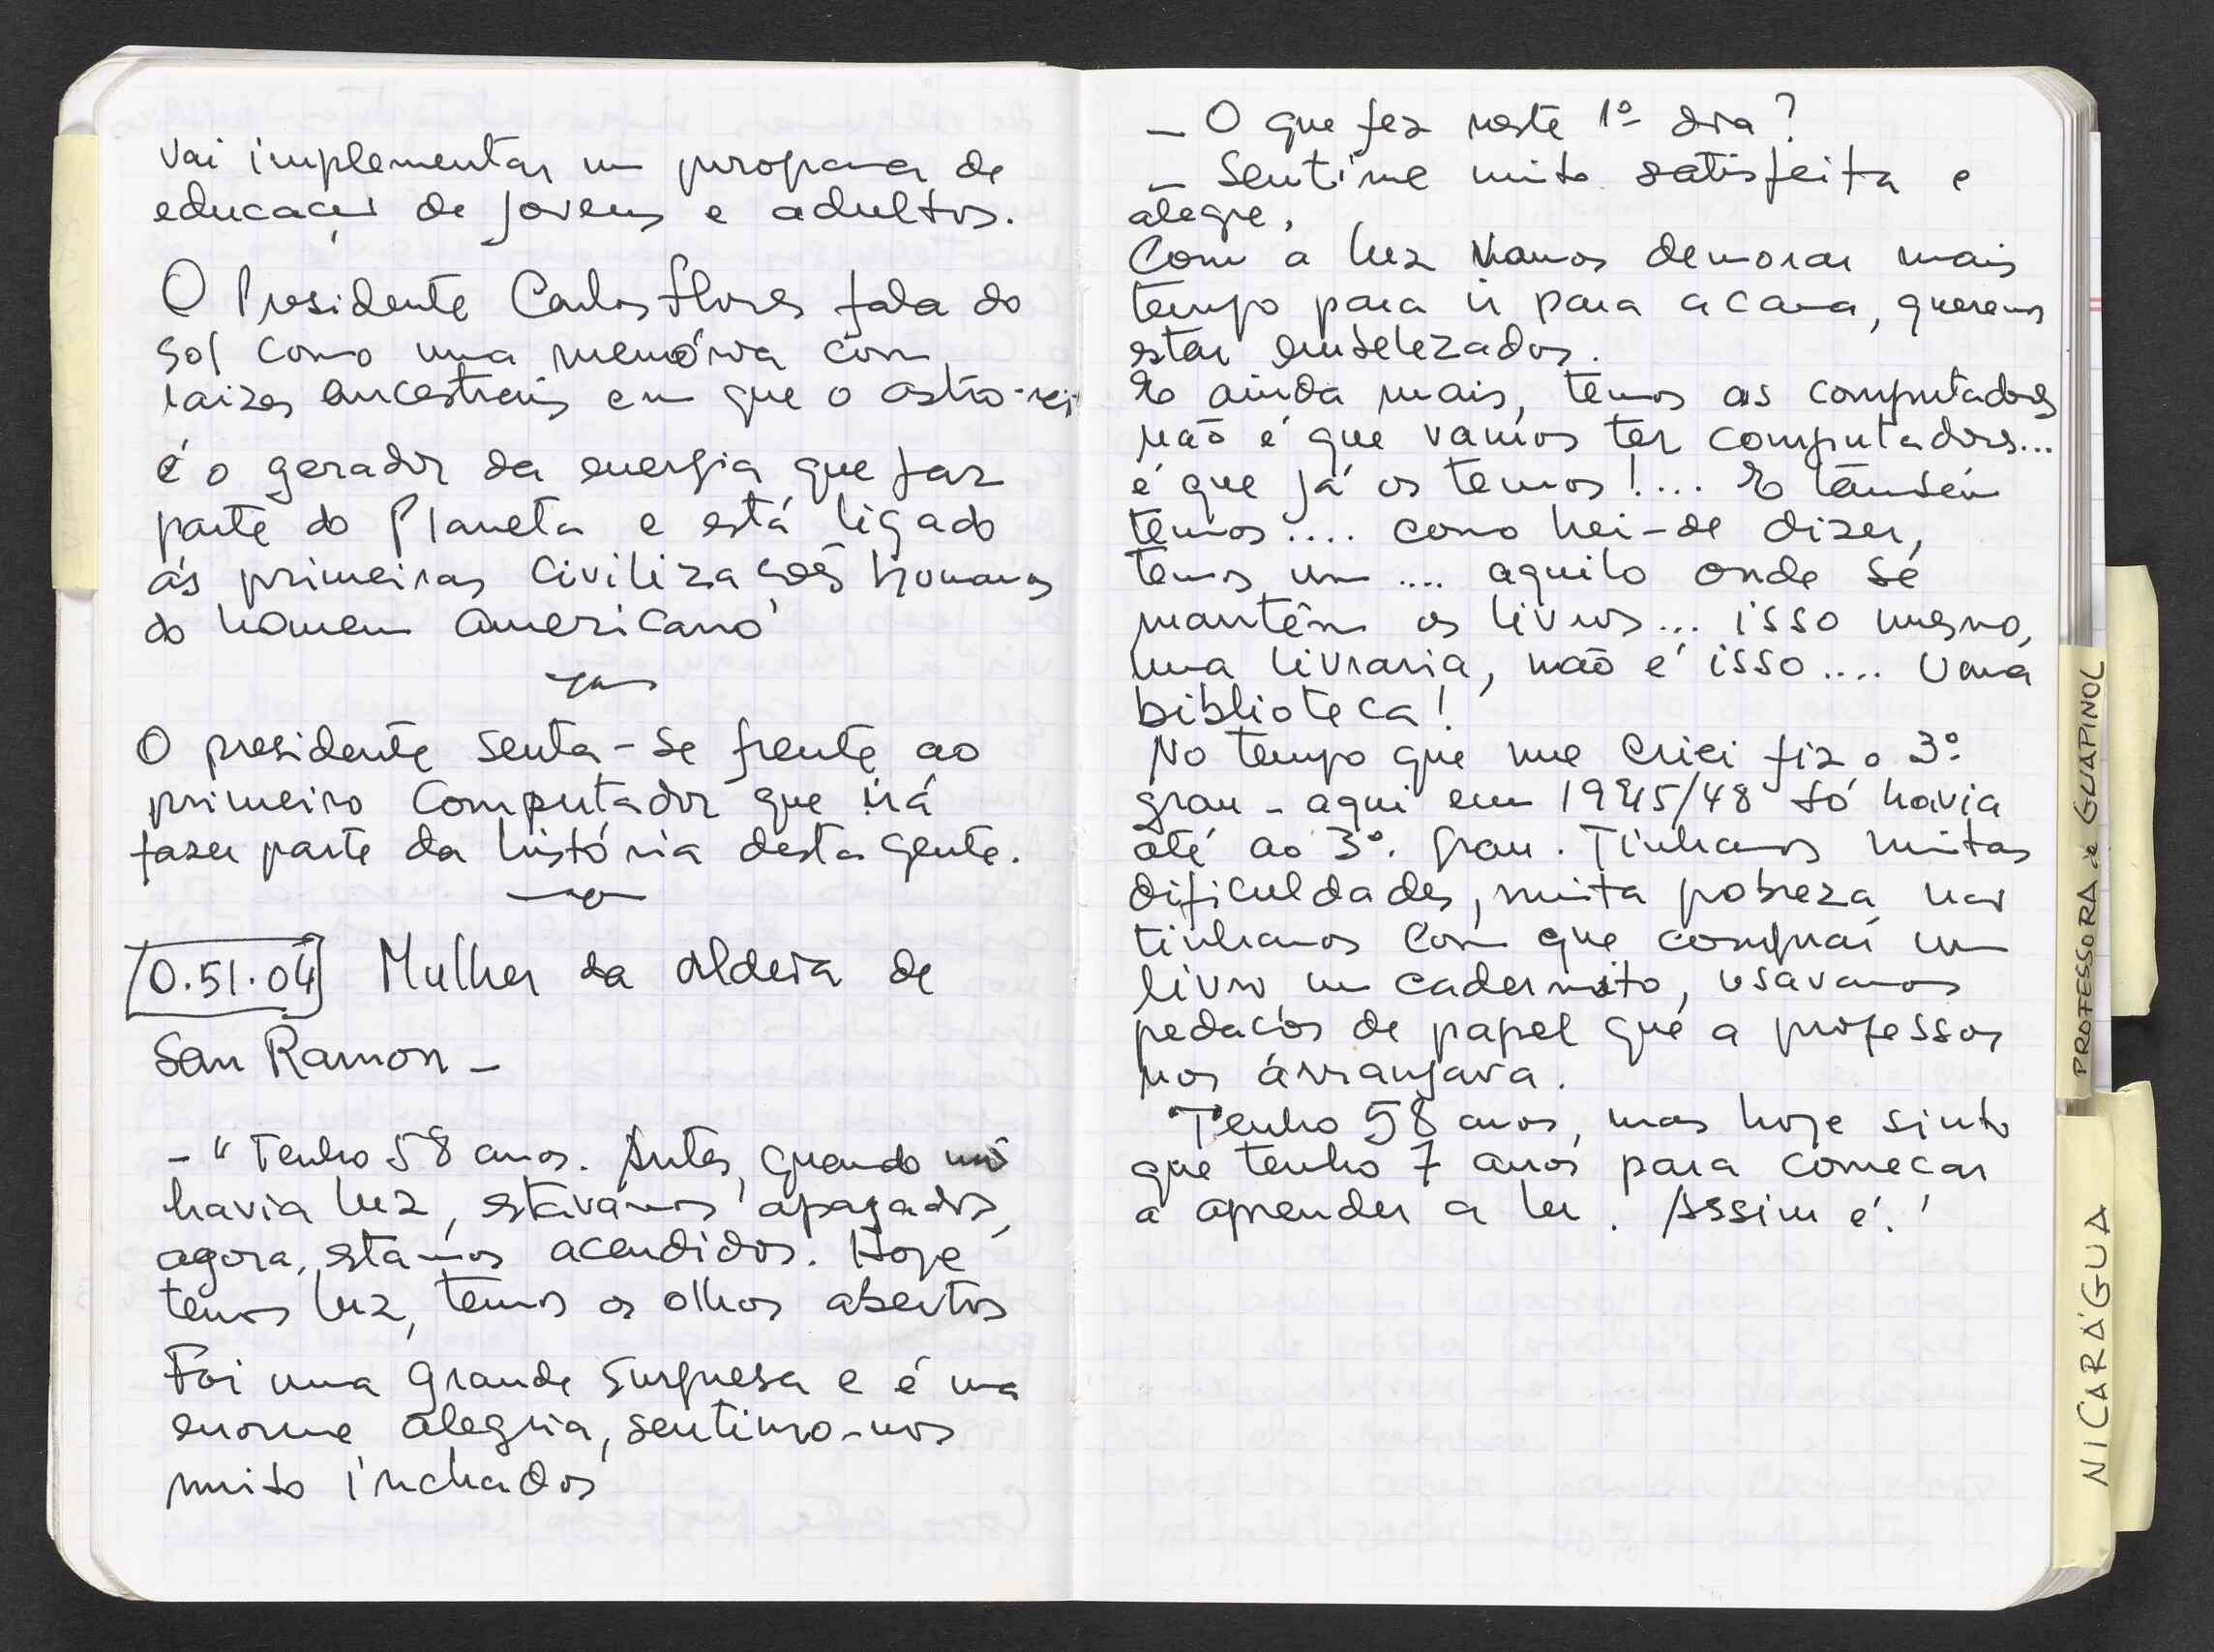 vai implementar um programa de
educação de jovens e adultos.
O Presidente Carlos Flores fala do
sol como uma memória com
raizes ancestrais em que o astro-rei
é o gerador da energia que faz
parte do Planeta e está ligado
às primeiras civilizações humanas
do homem americano
O presidente senta-se frente ao
primeiro computador que irá
fazer parte da história desta gente.
0.51.04 Mulher da aldeia de
San Ramon -
- "Tenho 58 anos. Antes, quando não
havia luz, estávamos apagados,
agora, estamos acendidos. Hoje
temos luz, temos os olhos abertos
Foi uma grande surpresa e é uma
enorme alegria, sentimo-nos
muito inchados
- O que fez neste 1º dia?
- Senti-me muito satisfeita e
alegre,
Com a luz vamos demorar mais
tempo para ir para a cama, queremos
estar embelezados.
E ainda mais, temos os computadores
não é que vamos ter computadores...
é que já os temos!.... E também
temos.... como hei-de dizer,
temos um.... aquilo onde se
mantêm os livros... isso mesmo,
uma livraria, não é isso.... Uma
biblioteca!
No tempo que me criei fiz o 3º
grau - aqui em 1945/48 só havia
até ao 3º. grau. Tinhamos muitas
dificuldades, muita pobreza, não
tinhamos com que comprar um
livro, um cadernito, usavamos
pedaços de papel que a professor
nos arranjava.
Tenho 58 anos, mas hoje sinto
que tenho 7 anos para começar
a aprender a ler. Assim é!
PROFESSORA de GUAPINOL
NICARÁGUA